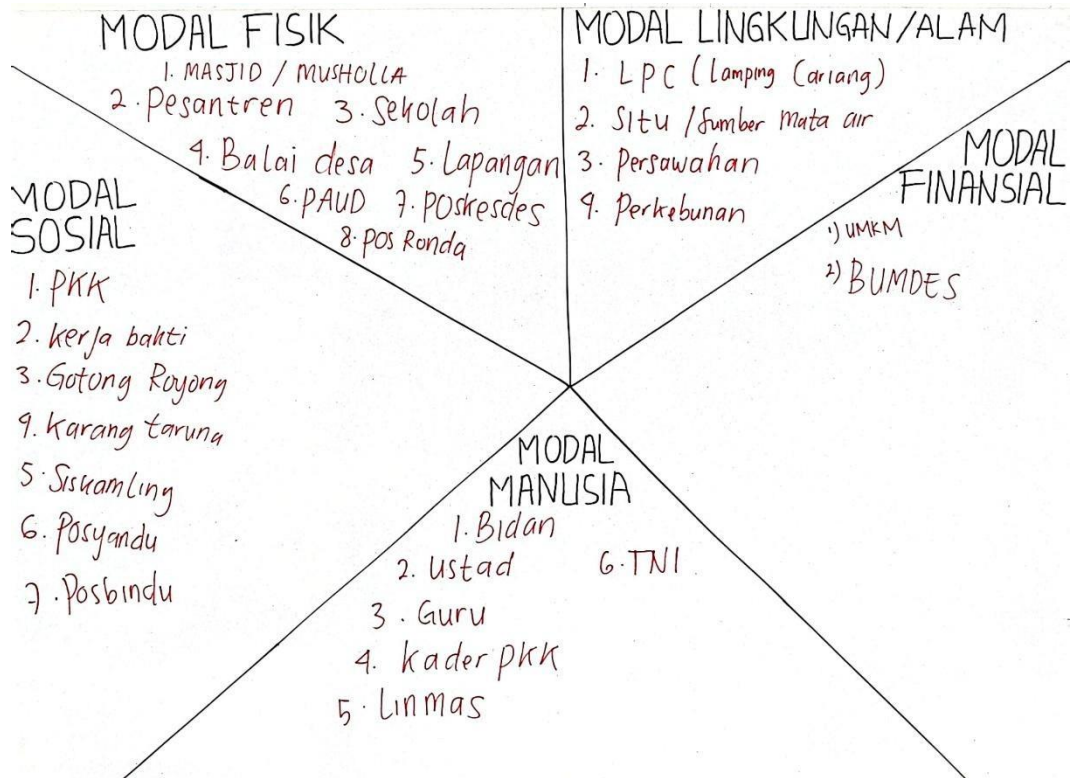 MODAL FISIK
1. MASJID / MUSHOLLA
2. Pesantren 3. Sekolah
4. Balai desa 5. Lapangan
6. PAUD 7. POskesdes
8. POS Ronda
MODAL LINGKUNGAN/ALAM
1. LPC (Lamping Cariang)
2. Situ / Sumber mata air
3. Persawahan
4. Perkebunan
MODAL
FINANSIAL
1) UMKM
2) BUMDES
MODAL
SOSIAL
1. PKK
2. kerja bakti
3. Gotong Royong
4. Karang taruna
5. Siskamling
6. Posyandu
7. Posbindu
MODAL
MANUSIA
1. Bidan
2. Ustad 6. TNI
3. Guru
4. Kader PKK
5. Linmas